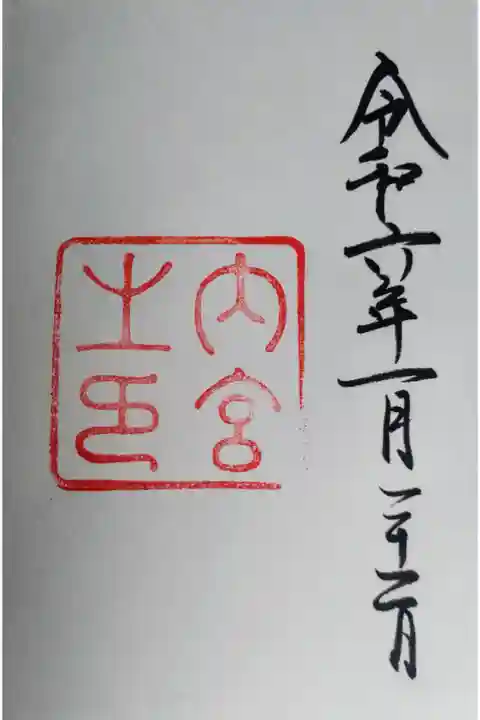 令和六年一月二十二日
内宮
之印